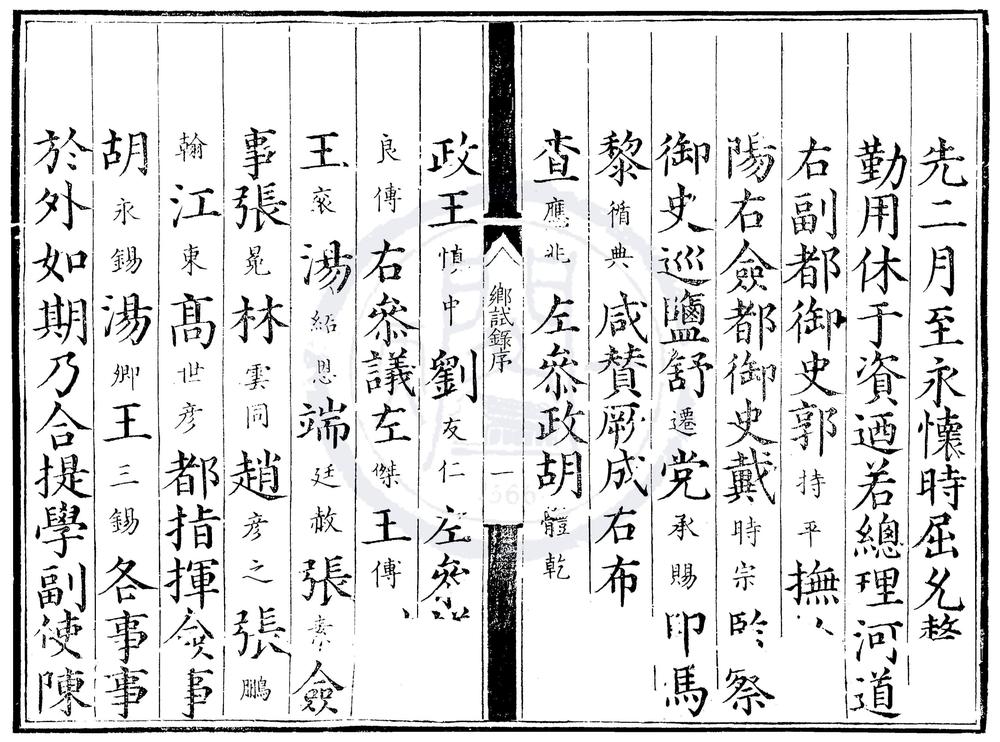 先二月至永懷時屈允整
勤用休于資迺若總理河道
右副都御史郭持平撫
陽右僉都御史戴時宗監察
御史巡鹽舒遷党承賜印馬
黎循典咸贊厥成右布
查應兆左叅政胡體乾
鄉試錄序
一
政王慎中劉友仁左叅
良傳右叅議左傑王傅
王袞湯紹恩端廷赦張素僉
事張晃林雲同趙彥之張鵬
翰江東髙世彥都指揮僉事
胡永錫湯卿王三錫各事事
於外如期乃合提學副使陳